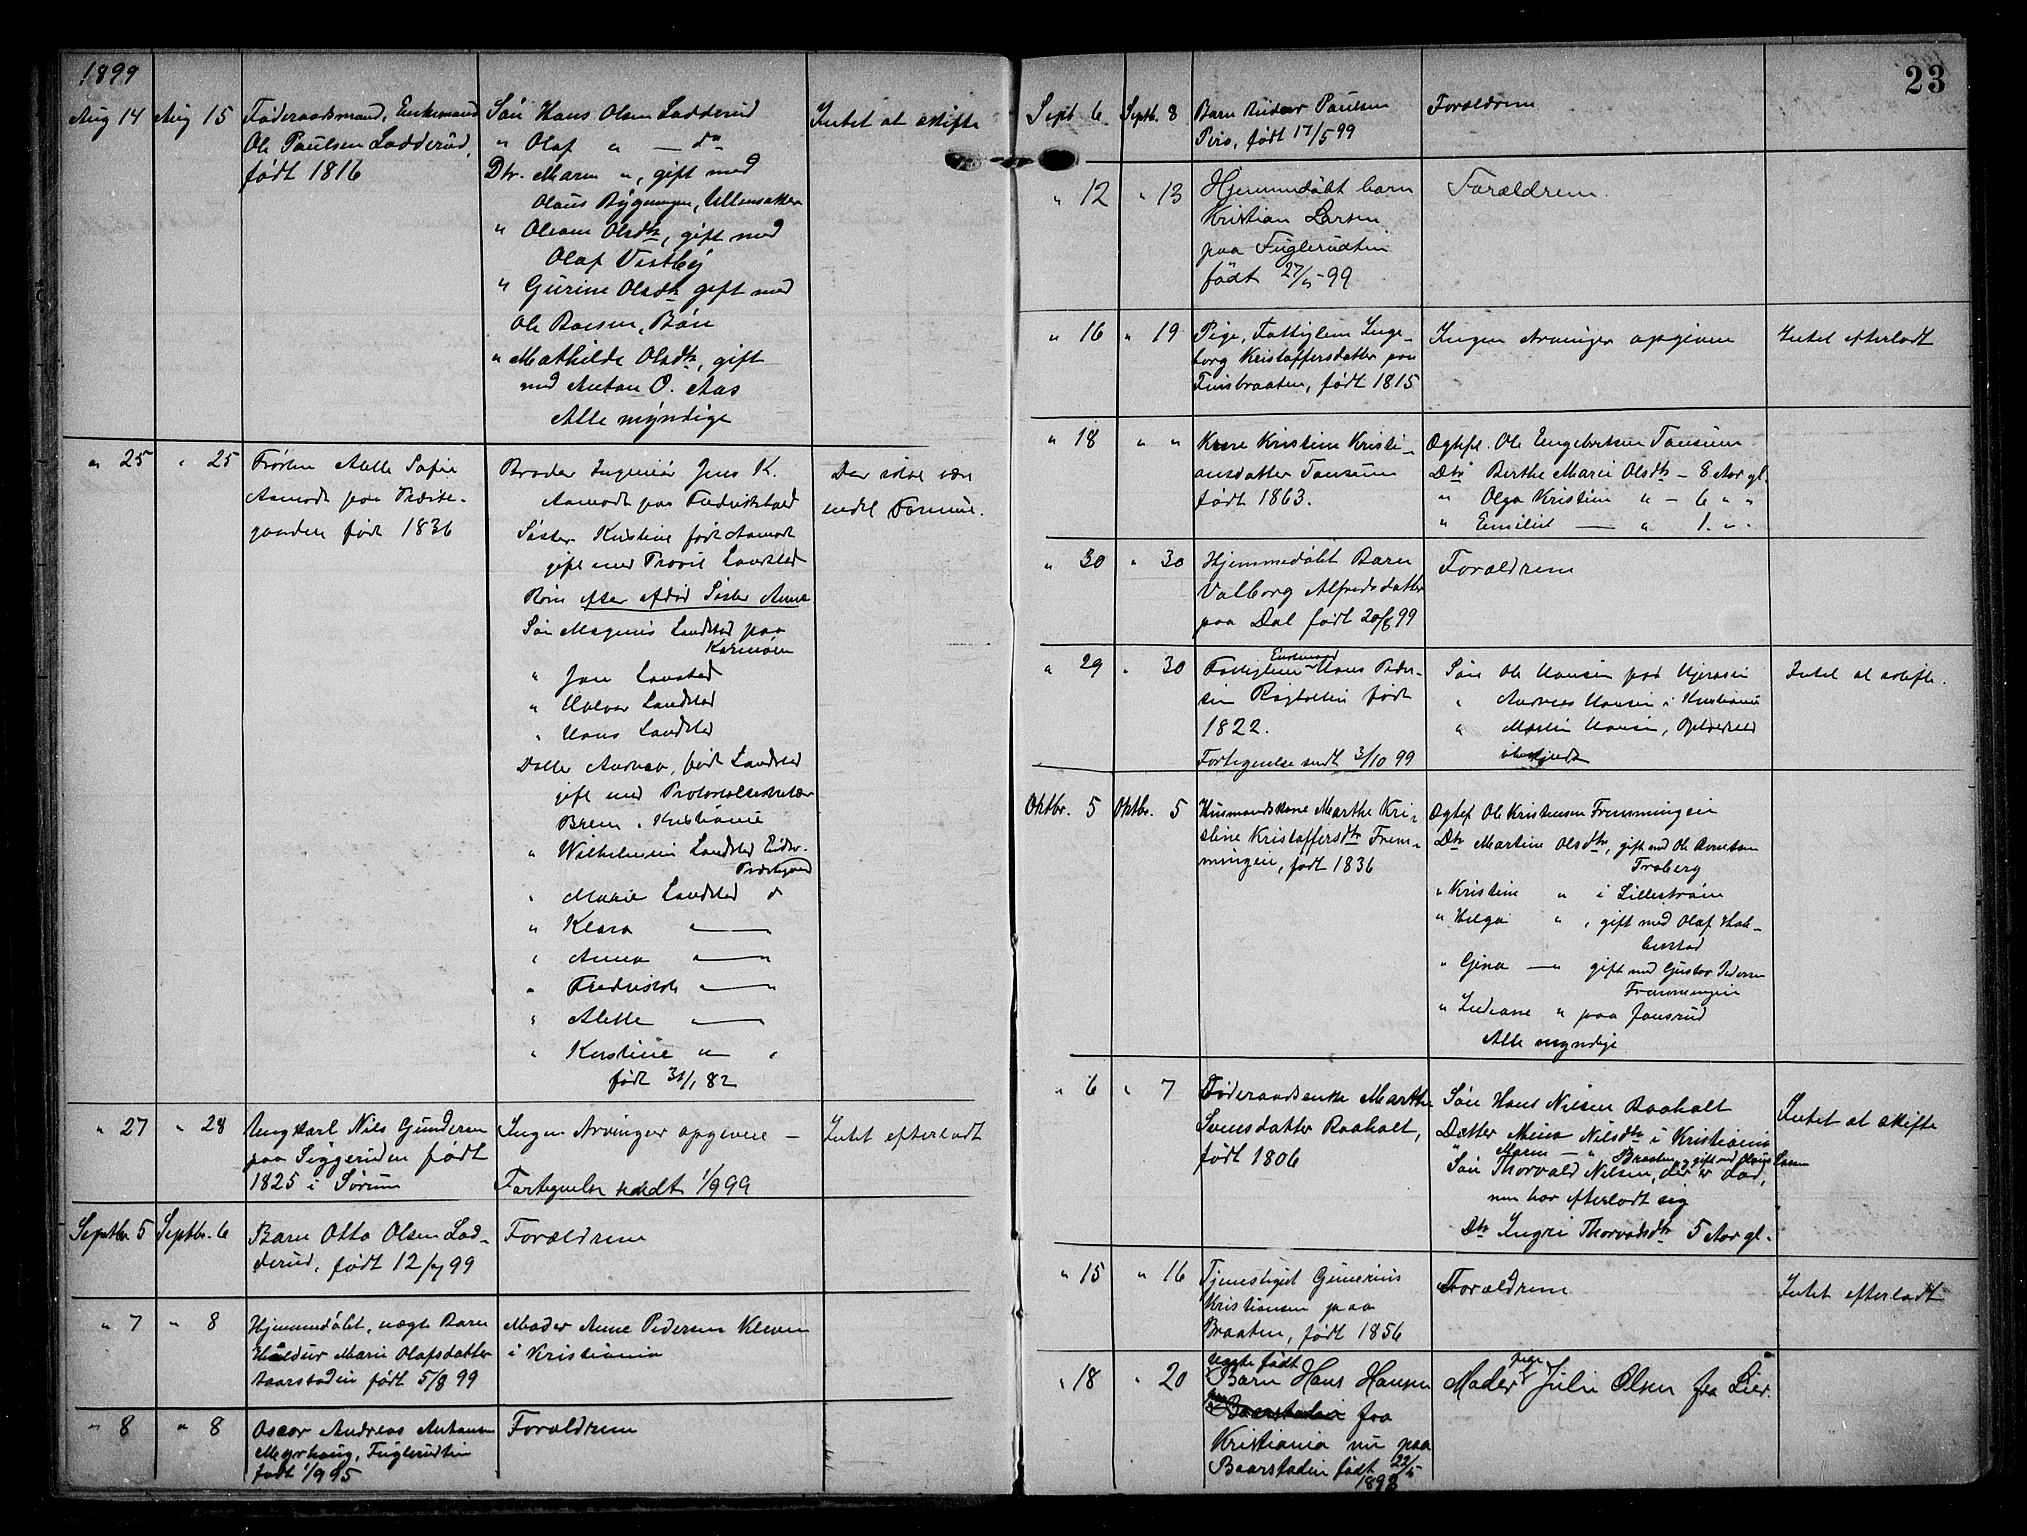 1899
Aug 14 Aug 15 Føderaadsmand, Enkemand Søn Hans Olsen Ladderud Intet at skifte
Ole Paulsen Ladderud, " Olaf " — do
født 1816 Dtr. Maren ", gift med
Olaus Bygningen, Ullensaker
" Oleane Olsdtr, gift med
Olaf Vestby
" Gurine Olsdtr gift med
Ole Boesen, Bøn
" Mathilde Olsdtr, gift
med Anton O. Aas
Alle myndige
" 25 " 25 Frøken Alette Sofie Broder Ingeniør Jens K. Der skal være
Aamodt paa Præste- Aamodt paa Fredrikstad endel Formue.
gaarden født 1836 Søster Kristine født Aamodt
gift med Provst Landstad
Børn efter afdød Søster Anna
Søn Magnus Landstad paa
Karmøen
" Jens Landstad
" Halvor Landstad
" Hans Landstad
Datter Andrea, født Landstad
gift med Protokolsekretær
Brem i Kristiania
" Wilhelmine Landstad Eidsv.
Præstegaard
" Marie Landstad do
" Klara " — "
" Anna " — "
" Fredrikke " — "
" Alette " — "
" Kirstine " "
født 31/1 82
" 27 " 28 Ungkarl Nils Gundersen Ingen Arvinger opgivne — Intet efterladt
paa Siggeruden født
1825 i Sørum Fortegnelse sendt 1/9 99
Septbr. 5 Septbr. 6 Barn Otto Olsen Lad- Forældrene
derud, født 12/7 99
" 7 " 8 Hjemmedøbt, uægte Barn Moder Anne Pedersen Kleven
Huldur Marie Olafsdatter i Kristiania
Baarstaden født 5/8 99
" 8 " 8 Oscar Andreas Antonsen Forældrene
Myrhaug, Fuglerudeie
født 1/9 95
23
Sept 6 Septb. 8 Barn Reidar Paulsen Forældrene
Piro, født 17/5 99
" 12 " 13 Hjemmedøbt barn Forældrene.
Kristian Larsen
paa Fuglerudeie
født 27/5 -99
" 16 " 19 Pige, Fattiglem Inge- Ingen Arvinger opgivne Intet efterladt
borg Kristoffersdatter paa
Finsbraaten, født 1815
" 18 " " Kone Kristine Kristi- Ægtefl. Ole Engebretsen Tansum
ansdatter Tansum Dtr Berthe Marie Olsdtr — 8 Aar gl.
født 1863. " Olga Kristine " — 6 " "
" Emilie — " 1. " "
" 30 " 30 Hjemmedøbt Barn Forældrene
Valborg Alfredsdatter
paa Dal født 20/8 99
" 29 " 30 Fattiglem Enkemand Hans Peder- Søn Ole Hansen paa Hjerasen Intet at skifte.
sen født " Andreas Hansen i Kristiania
1822. " Martin Hansen, Opholdssted
Fortegnelse sendt 3/10 99 ubekjendt
Oktbr. 5 Oktbr. 5 Husmandskone Marthe Kri- Ægtef Ole Kristensen Fremmingen
stine Kristoffersdtr Frem- Dtr Martine Olsdtr, gift med Ole Arntsen
mingen, født 1836 Traberg
" Kristine " i Lillestrøm
" Helga " , gift med Olaf Hol-
" Gina — " gift med Gustav Pedersen
Fremmingen
" Indiane " paa Jansrud
Alle myndige
" 6 " 7 Føderaadsenke Marthe Søn Hans Nilsen Raaholt Intet at skifte
Svensdatter Raaholt, Datter Mina Nilsdtr i Kristiania
født 1806 " Maren — " Braaten, gift med Olaus Larsen
Søn Thorvald Nilsen, der er død,
men har efterladt sig
Dtr Ingri Thorvaldsdtr 5 Aar gl.
" 15 " 16 Tjenestepige Gunerius Forældrene Intet efterladt
Kristiansen paa
Braaten, født 1856
" 18 " 20 uægte født Barn Hans Hansen Moder pige Julie Olsen fra Lier.
paa Baarstaden fra
Kristiania nu paa
Baarstaden født 22/5
1898